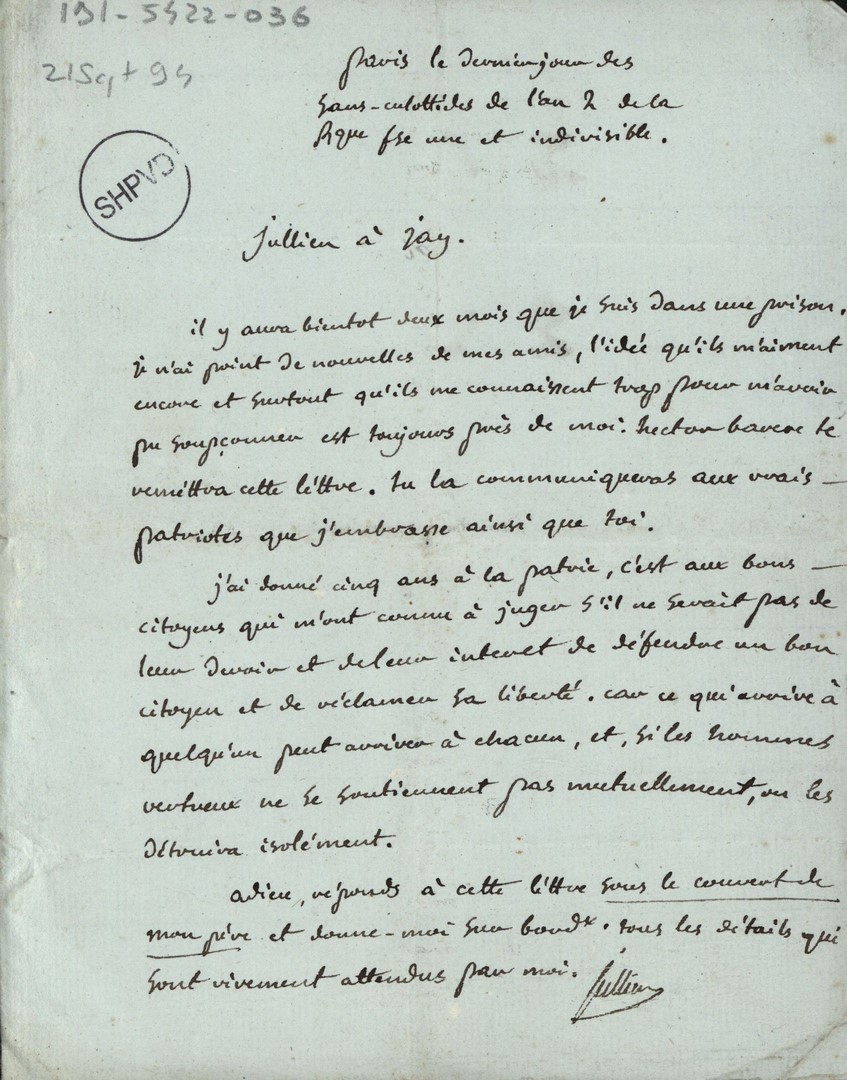 191-5422-036
21 Sept 94
SHPVD
paris le dernier jour des
sans-culottides de l'an 2 de la
Rque fse une et indivisible.
jullien à jay.
il y aura bientot deux mois que je suis dans une prison.
je n'ai point de nouvelles de mes amis, l'idée qu'ils m'aiment
encore et surtout qu'ils me connaissent trop pour m'avoir
pu soupçonner est toujours près de moi. hector barere te
remettra cette léttre. tu la communiqueras aux vrais —
patriotes que j'embrasse ainsi que toi.
j'ai donné cinq ans à la patrie, c'est aux bons —
citoyens qui m'ont connu à juger s'il ne serait pas de
leur devoir et de leur interet de défendre un bon
citoyen et de réclamer sa liberté. car ce qui arrive à
quelqu'un peut arriver à chacun, et, si les hommes
vertueux ne se soutiennent pas mutuellement, on les
détruira isolément.
adieu, réponds à cette léttre sous le couvert de
mon père et donne-moi sur bordx. tous les détails qui
sont vivement attendus par moi. Jullien